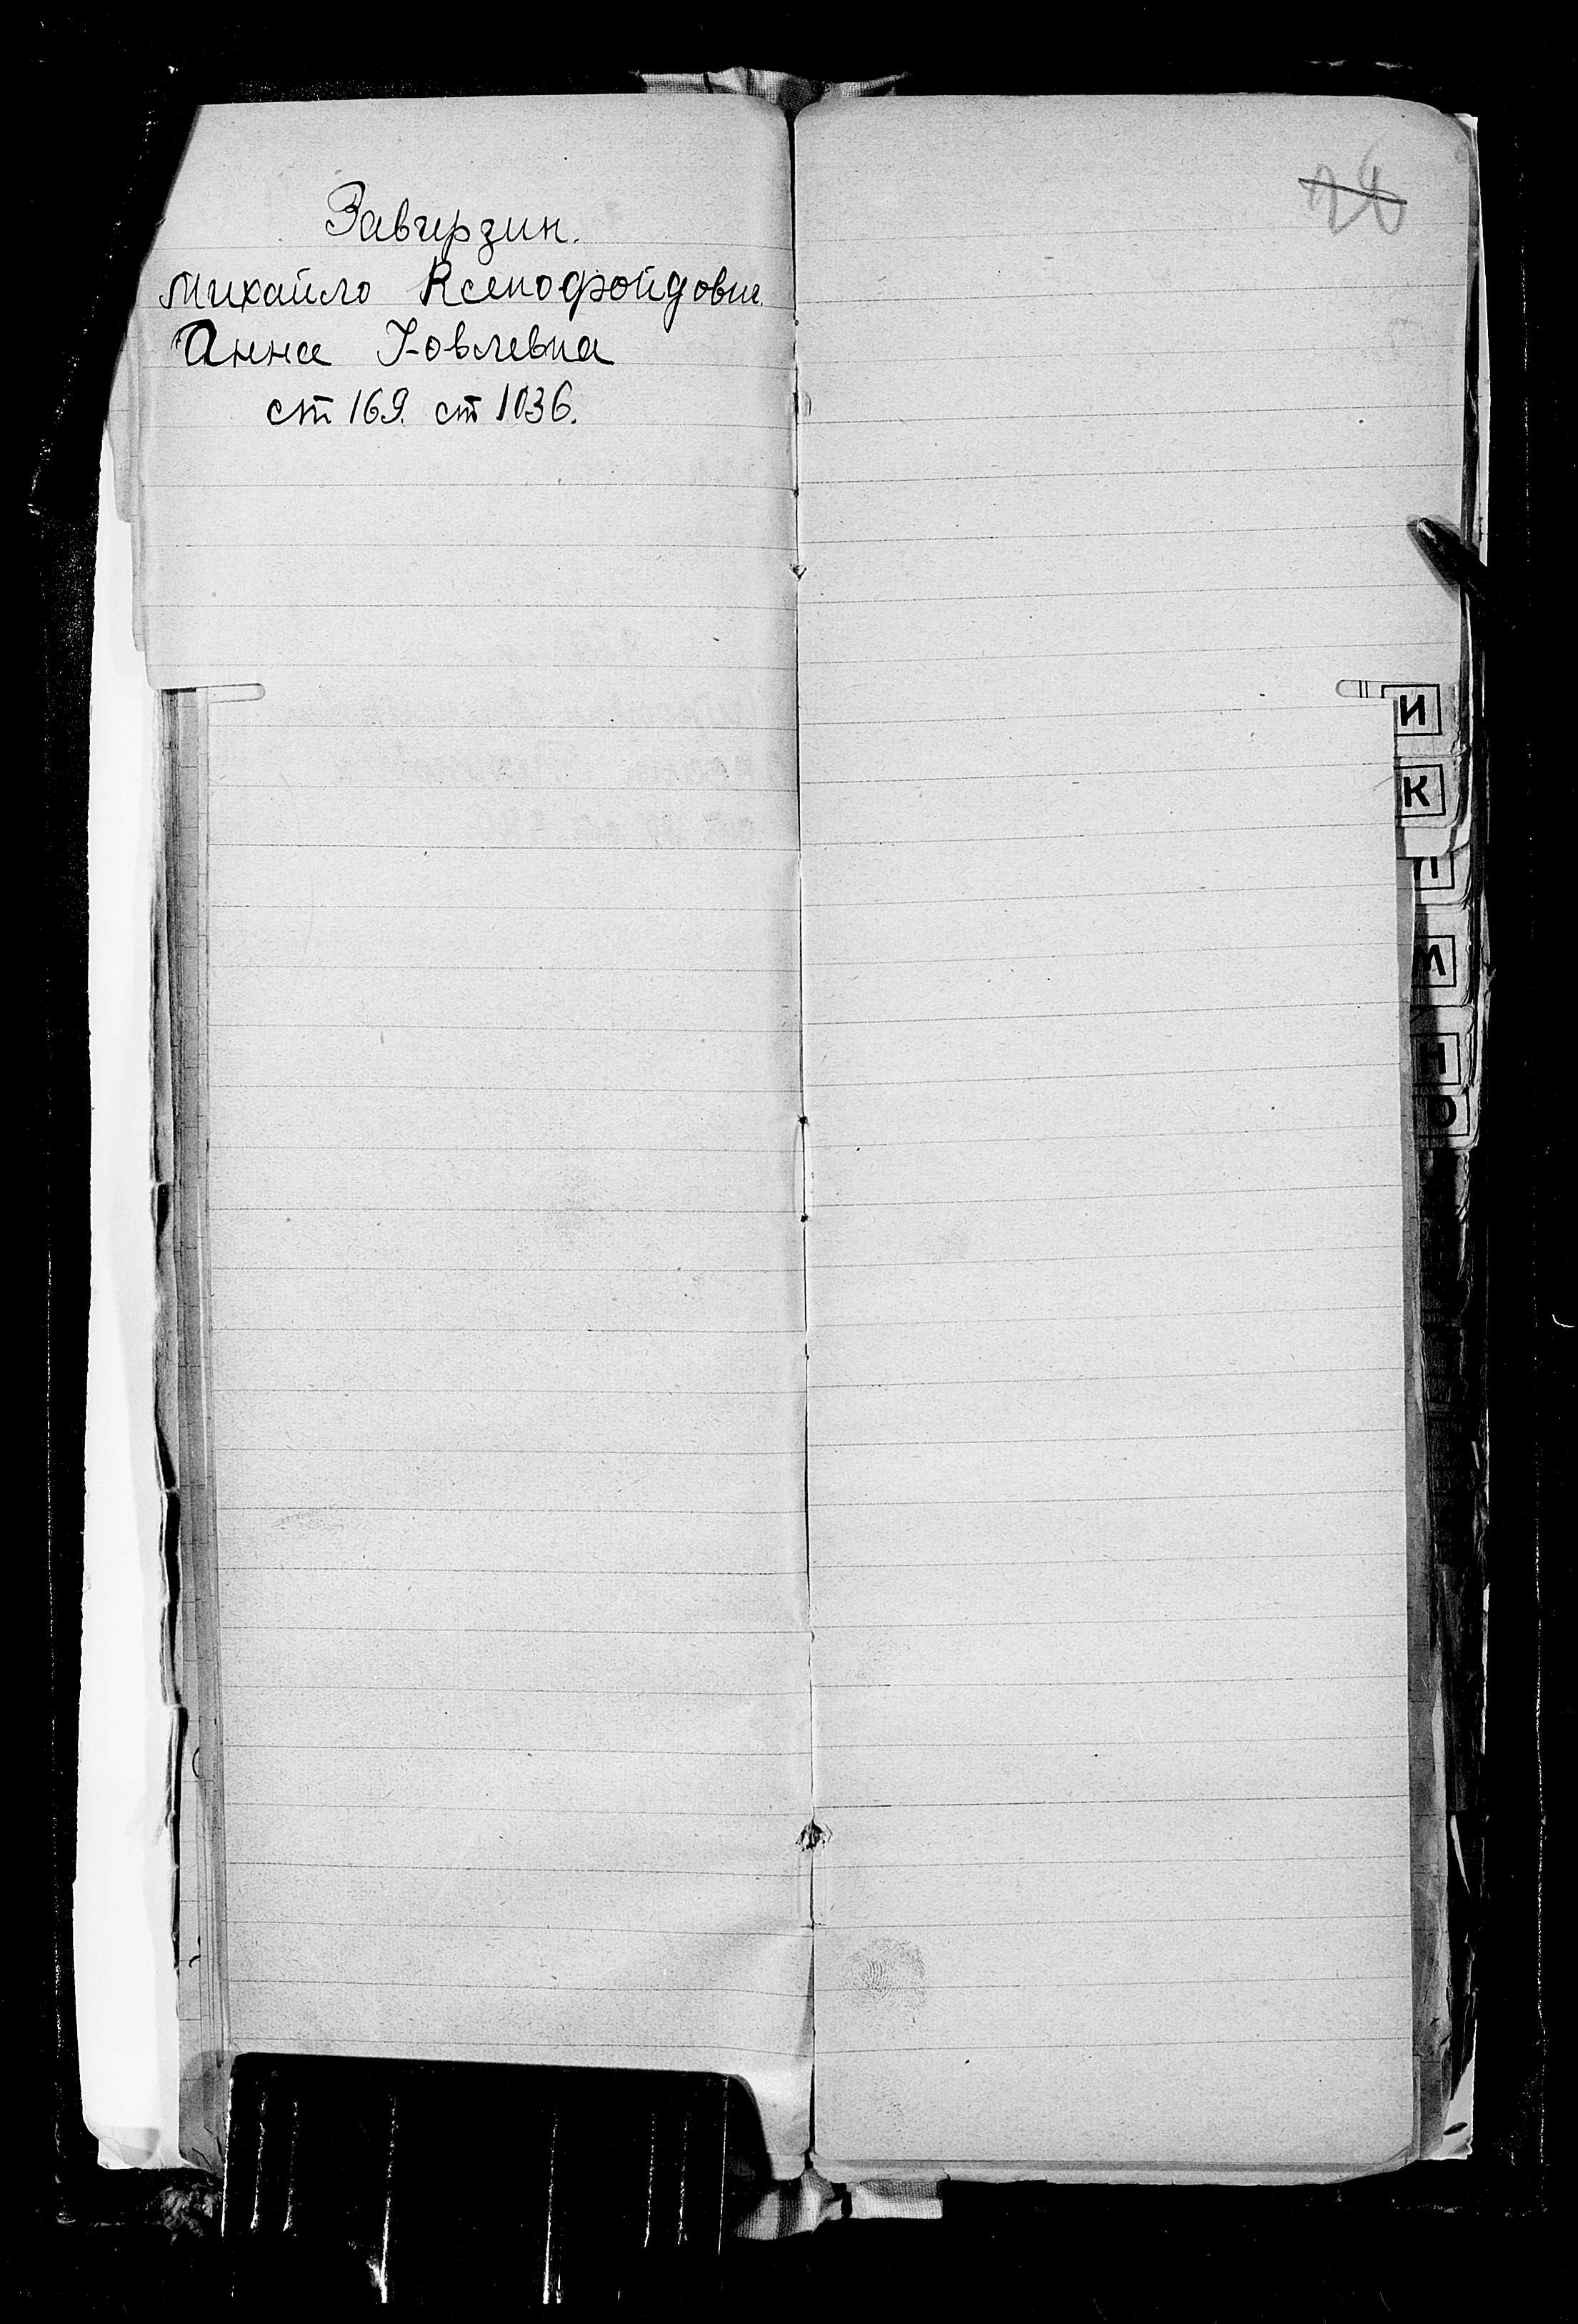 Завгерзин.
Михайло Ксенофойдович.
Анна Иовлевна
ст 169. ст 1036.
26
И
К
Л
М
Н
О